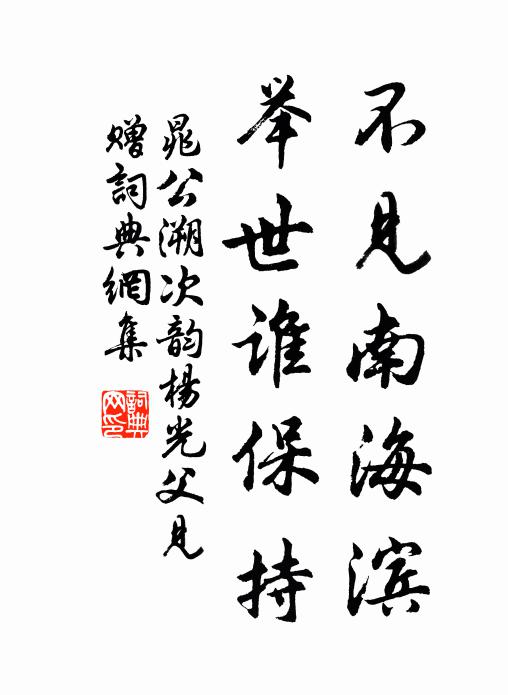 不见南海滨
举世谁保持
晁公溯次韵杨光父见
赠詞典網集
詞典网印